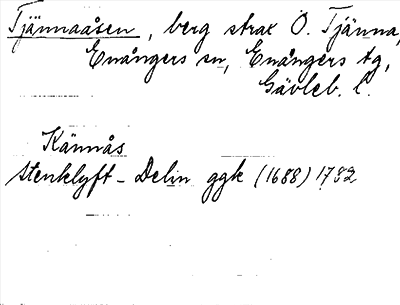 Tjännaåsen, berg strax Ö. Tjänna,
Enångers sn, Enångers tg,
Gävleb. l.
Kännås
stenklyft - Delin ggk (1688) 1732